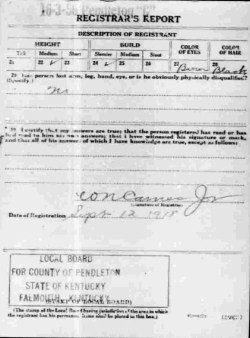 16-3-56 Pendleton "C"
REGISTRAR'S REPORT
DESCRIPTION OF REGISTRANT
HEIGHT BUILD COLOR OF EYES COLOR OF HAIR
Tall Medium Short Slender Medium Stout
21 22 23 24 25 26 27 Brown 28 Black
29 Has person lost arm, leg, hand, eye, or is he obviously physically disqualified?
(Specify.)
No
30 I certify that my answers are true; that the person registered has read or has
had read to him his own answers; that I have witnessed his signature or mark,
and that all of his answers of which I have knowledge are true, except as follows:
Jr
(Signature of Registrar)
Date of Registration Sept 12 1918
LOCAL BOARD
FOR COUNTY OF PENDLETON
STATE OF KENTUCKY
FALMOUTH, KENTUCKY
(STAMP OF LOCAL BOARD)
(The stamp of the Local Board having jurisdiction of the area in which
the registrant has his permanent home shall be placed in this box.)
(OVER)